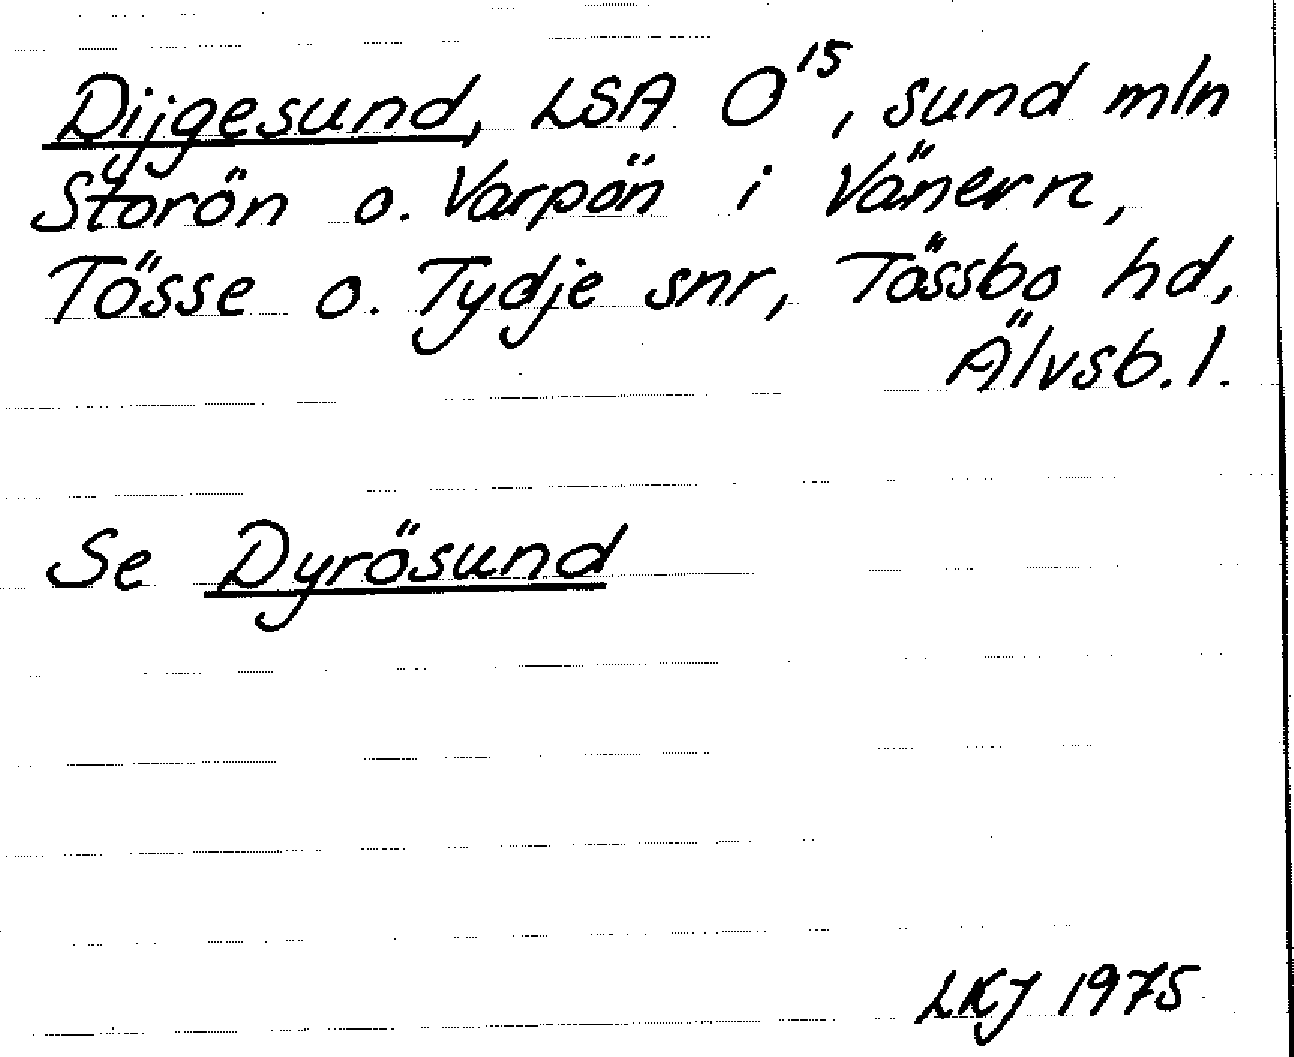 Dijgesund, LSA O15, sund mln
Storön o. Varpön i Vänern,
Tösse o. Tydje snr, Tössbo hd,
Älvsb. l.
Se Dyrösund
LKJ 1975